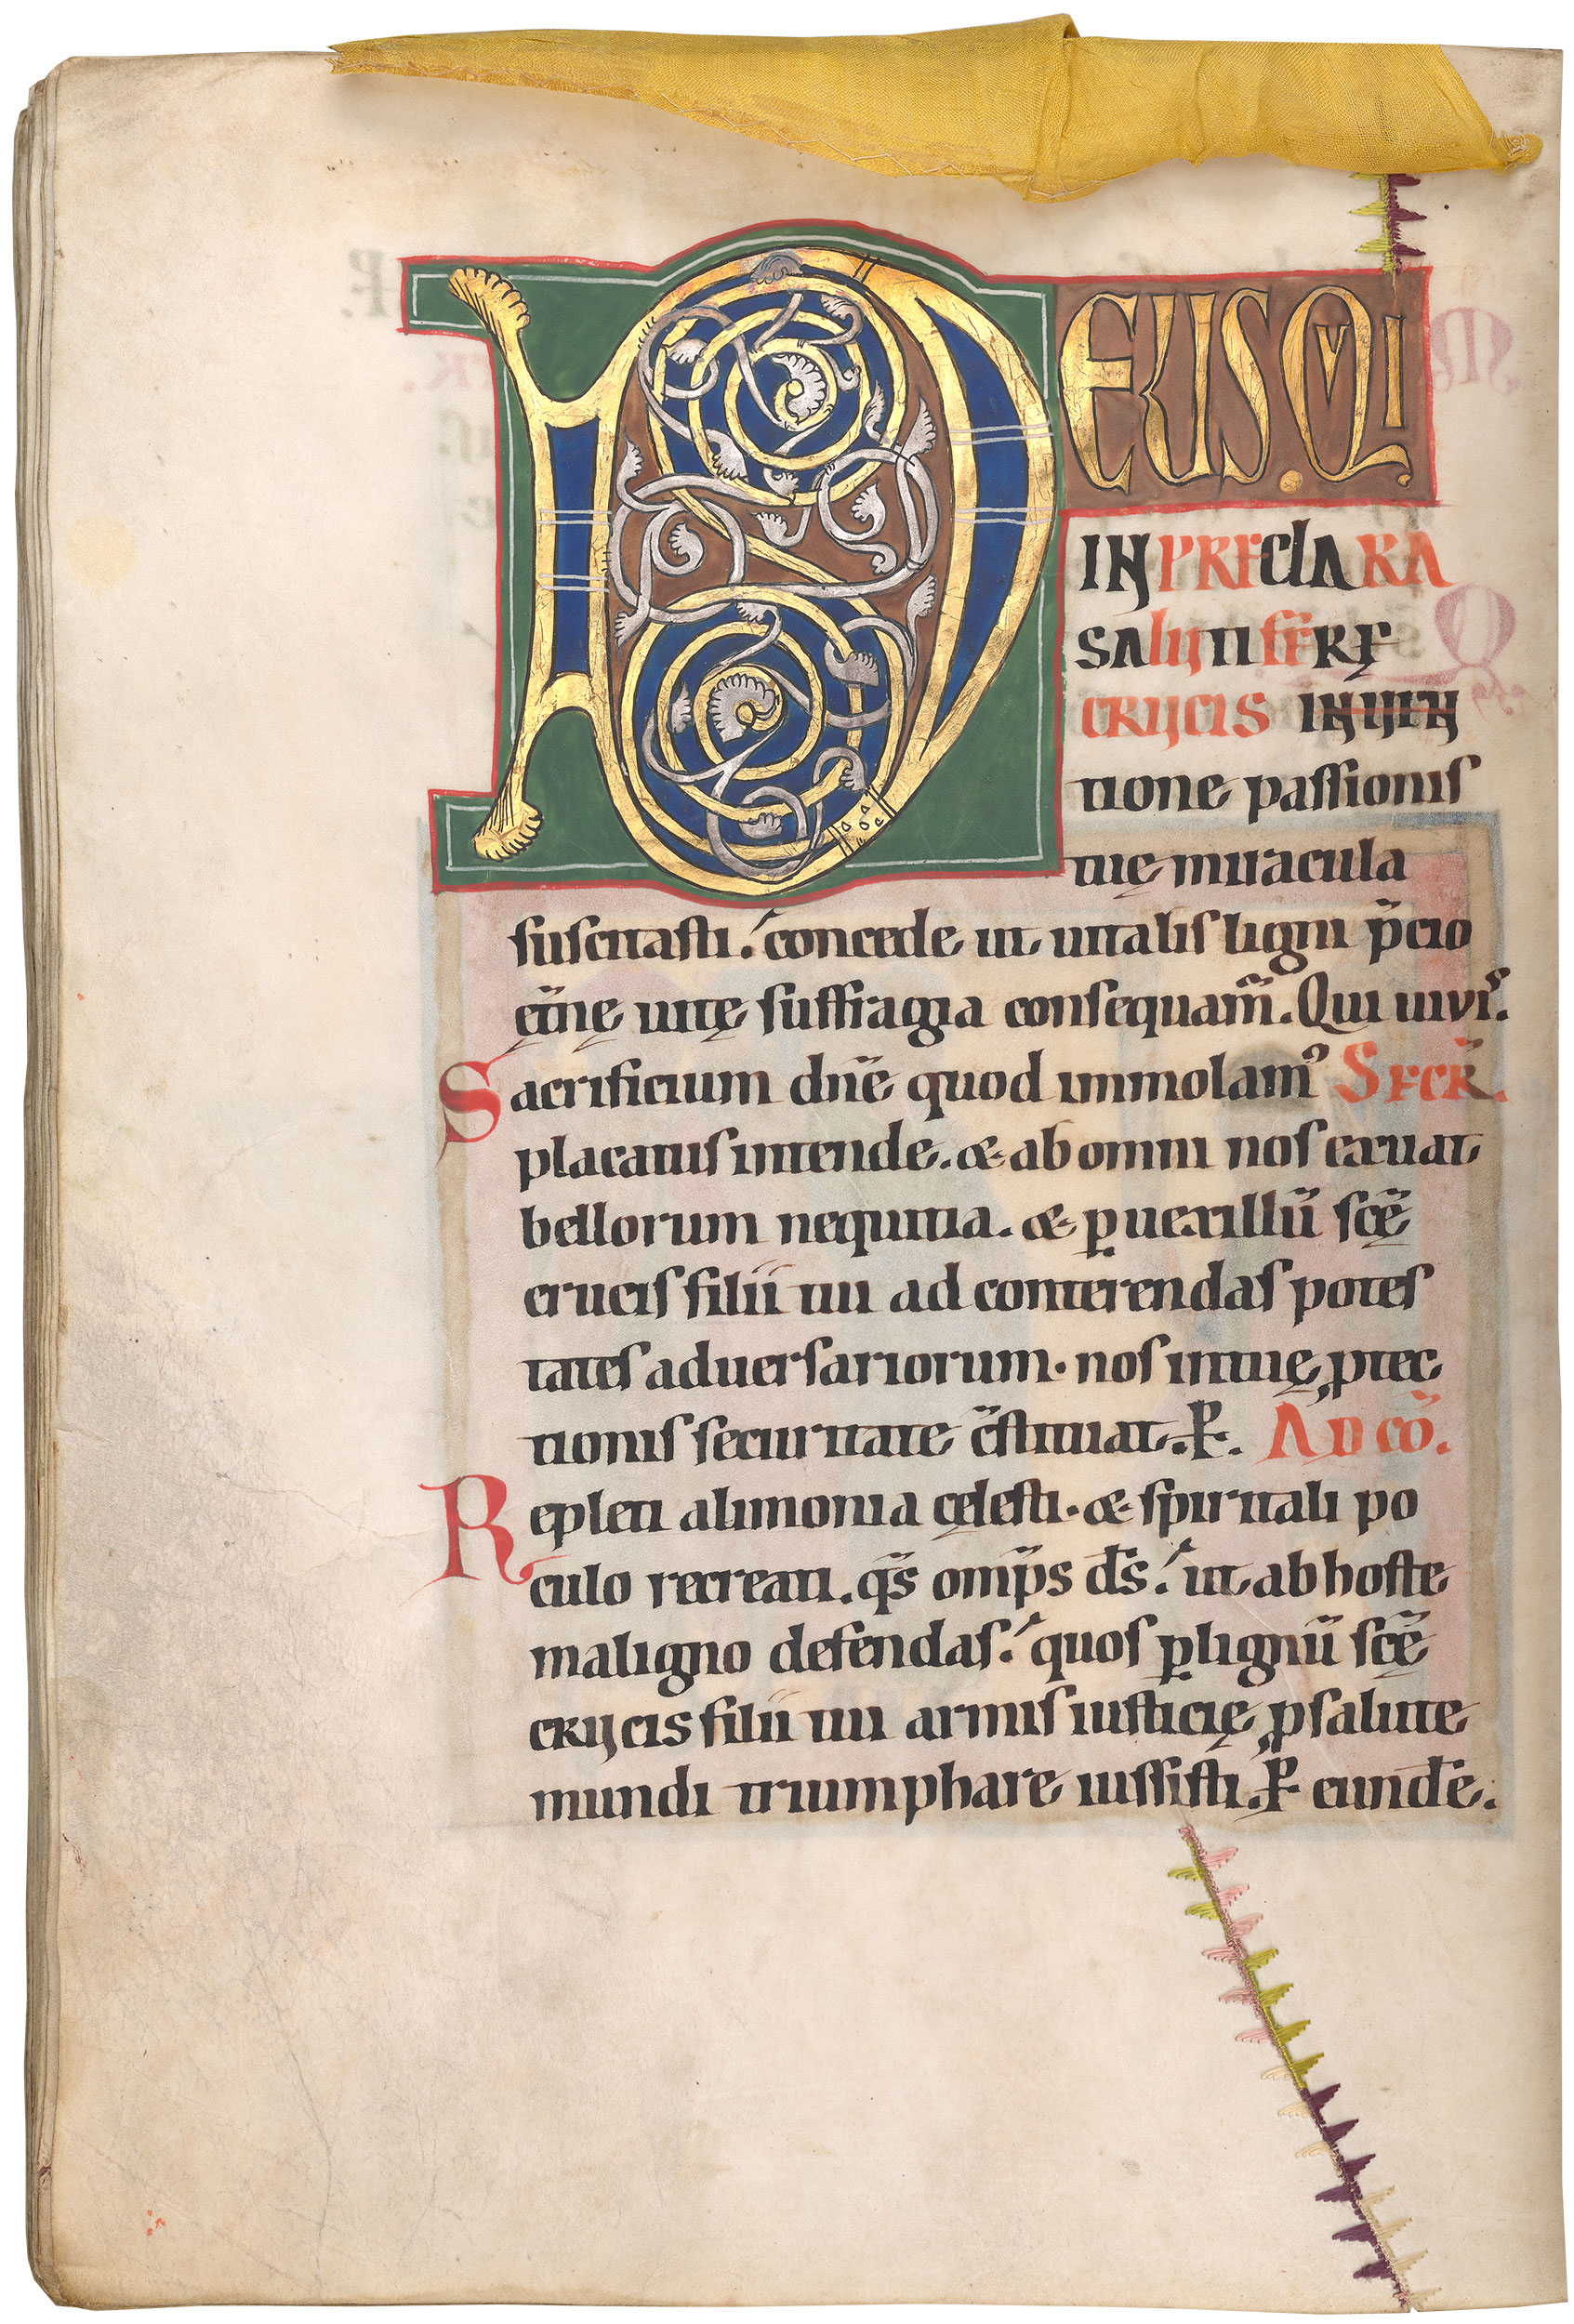 DEUS. QVI
IN PRECLARA
SALUTIFERE
CRUCIS INUEN
tione passionis
tuę miracula
suscitasti. concede ut uitalis ligni p̄cio
ęt̄nę uitę suffragia consequam̄. Qui uiv̄.
Sacrificium dn̄e quod immolam᾿ SECR̄.
placatus intende. & ab omni nos exuat
bellorum nequitia. & ꝑ uexillū sc̄ę
crucis filii tui ad conterendas potes
tates aduersariorum. nos in tuę ꝓtec
tionis securitate c̄stituat. P. AD CŌ.
Repleti alimonia cęlesti. & spiritali po
culo recreati. qs̄ omp̄s ds̄. ut ab hoste
maligno defendas. quos ꝑ lignū sc̄ę
crucis filii tui armis iusticię ꝓ salute
mundi triumphare iussisti. P eundē.